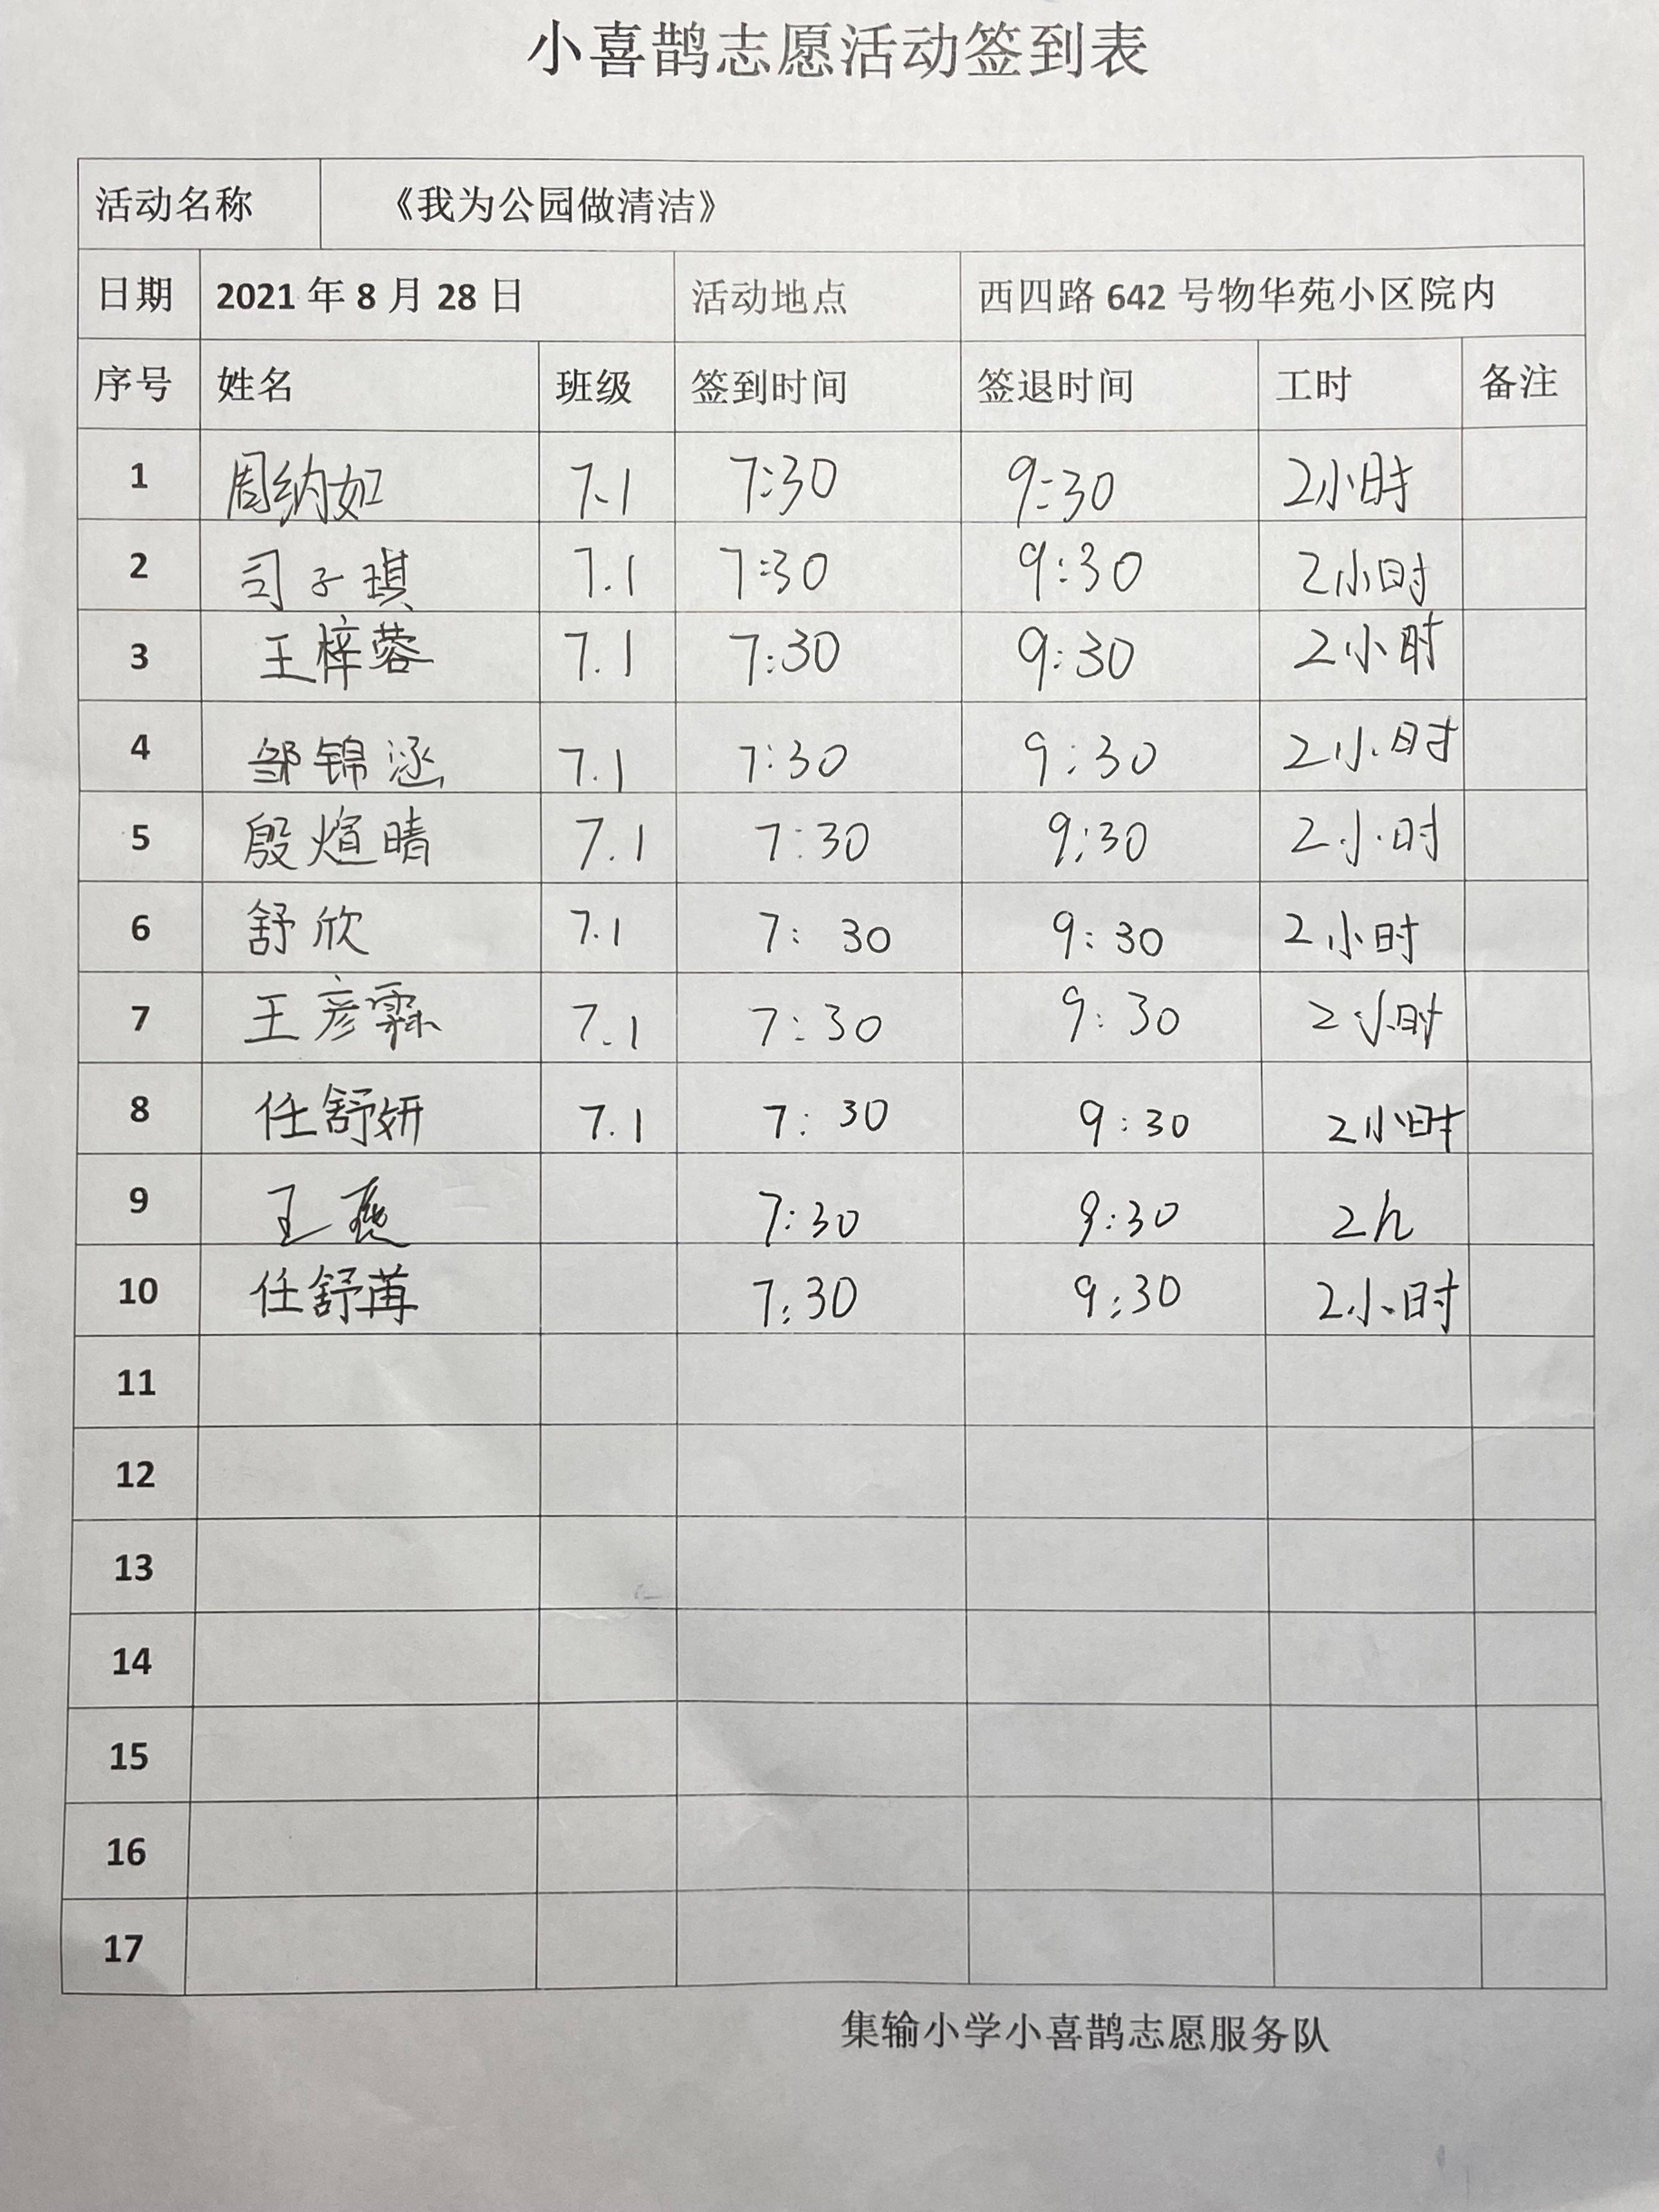 小喜鹊志愿活动签到表
活动名称 《我为公园做清洁》
日期 2021 年 8 月 28 日 活动地点 西四路 642 号物华苑小区院内
序号 姓名 班级 签到时间 签退时间 工时 备注
1 周纳如 7.1 7:30 9:30 2小时
2 司子琪 7.1 7:30 9:30 2小时
3 王梓蓉 7.1 7:30 9:30 2小时
4 邹锦涵 7.1 7:30 9:30 2小时
5 殷煊晴 7.1 7:30 9:30 2小时
6 舒欣 7.1 7:30 9:30 2小时
7 王彦霖 7.1 7:30 9:30 2小时
8 任舒妍 7.1 7:30 9:30 2小时
9 王 7:30 9:30 2h
10 任舒 7:30 9:30 2小时
11
12
13
14
15
16
17
集输小学小喜鹊志愿服务队